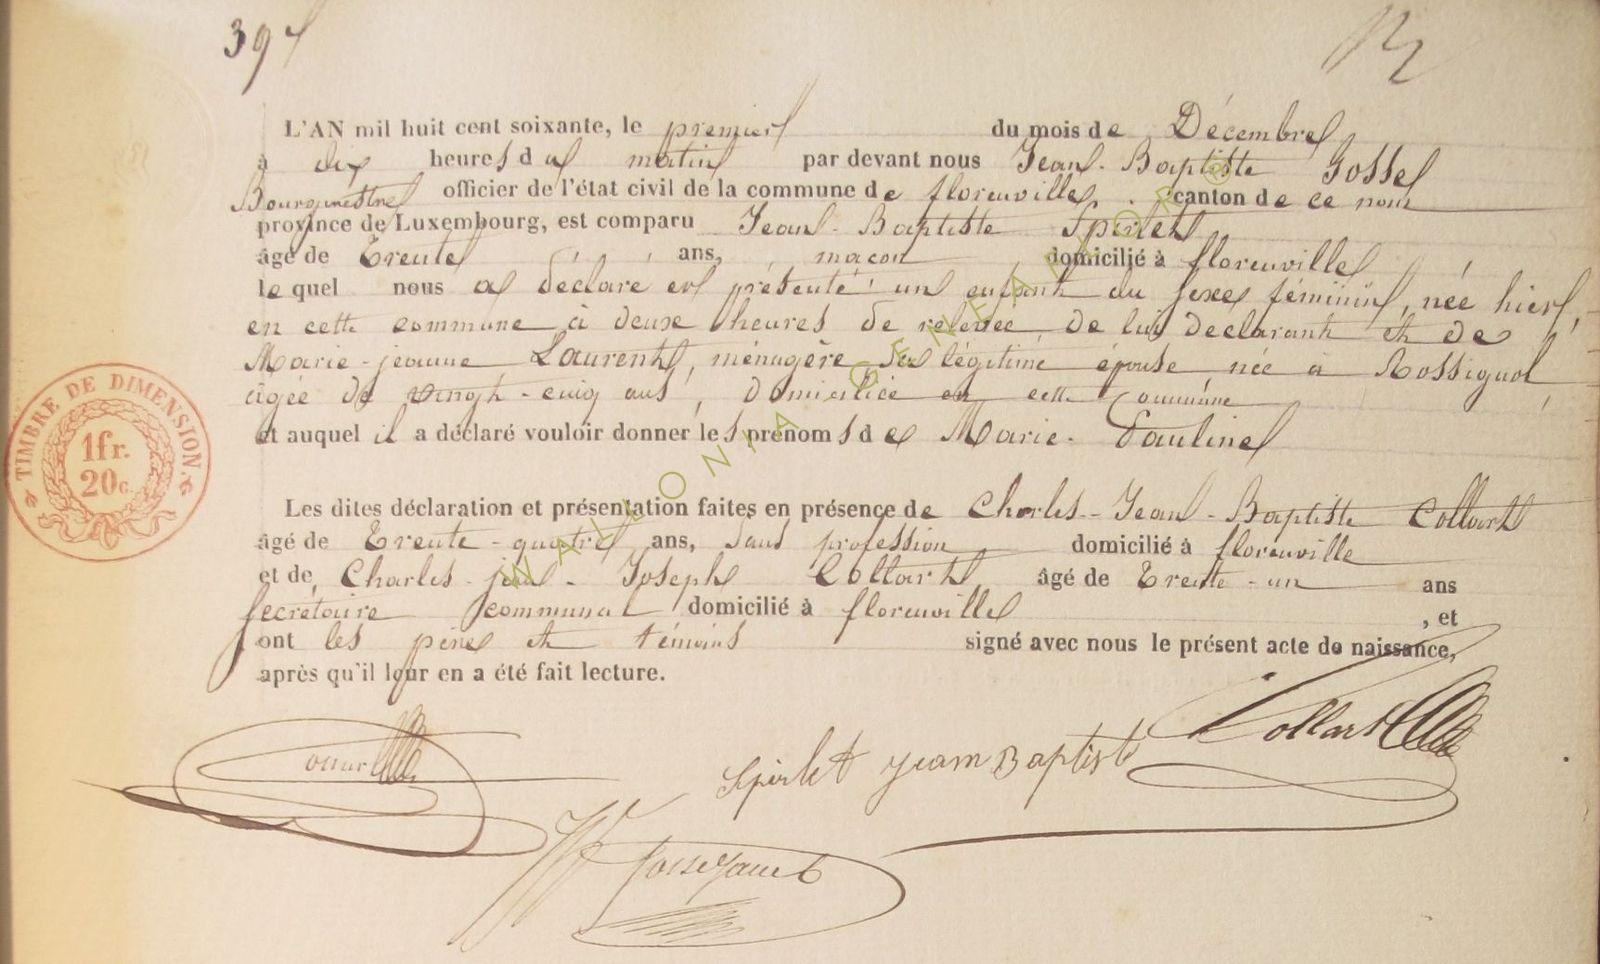 39
L'AN mil huit cent soixante, le premier du mois de Décembre
à dix heures du matin par devant nous Jean-Baptiste Gosse
Bourgmestre officier de l'état civil de la commune de florenville, canton de ce nom
province de Luxembourg, est comparu Jean-Baptiste Spirlet
âgé de Trente ans, maçon domicilié à florenville
le quel nous a déclaré et présenté un enfant du sexe féminin, née hier,
en cette commune à deux heures de relevée de lui déclarant et de
Marie-jeanne Laurent, ménagère sa légitime épouse née à Rossignol,
âgée de vingt-cinq ans, domiciliée en cette Commune
et auquel il a déclaré vouloir donner les prénoms de Marie-Pauline
Les dites déclaration et présentation faites en présence de Charles-Jean-Baptiste Collart
âgé de Trente-quatre ans, sans profession domicilié à florenville
et de Charles-jean-Joseph Collart âgé de Trente-un ans
secrétaire communal domicilié à florenville, et
ont les père et témoins signé avec nous le présent acte de naissance,
après qu'il leur en a été fait lecture.
TIMBRE DE DIMENSION.
1fr.
20c.
WALLONIA GENEA PHOR
Collart
Spirlet jeam Baptist